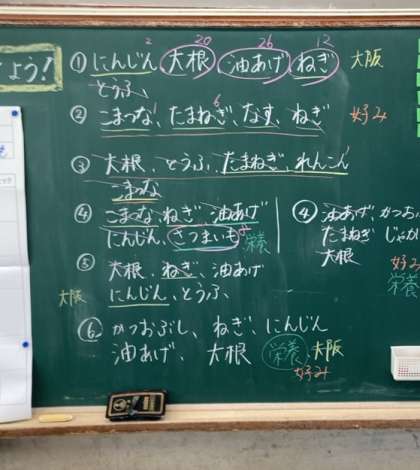 よう!
2 20 26 12
① にんじん 大根、油あげ ねぎ 大阪
とうふ、
6
② こまつな、たまねぎ、なす、ねぎ 好み
③ 大根、とうふ、たまねぎ、れんこん
こまつな
④ こまつな、ねぎ、油あげ
にんじん、さつまいも 栄養
⑤ 大根、ねぎ、油あげ
大阪 にんじん、とうふ、
⑥ かつおぶし、ねぎ、にんじん
油あげ、大根 栄養、大阪
好み
④ 油あげ、かつお
たまねぎ じゃが
大根
好み
栄養